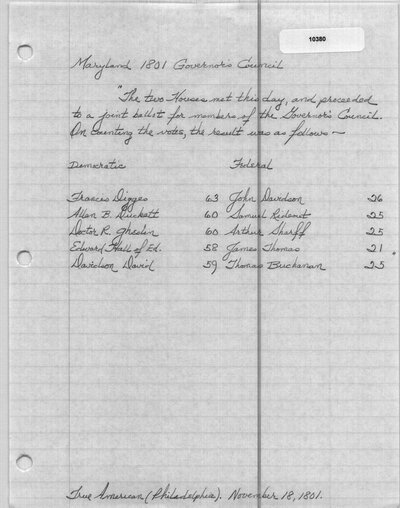 10380
Maryland 1801 Governor's Council
"The two Houses met this day, and proceeded
to a joint ballot for members of the Governor's Council.
On counting the votes, the result was as follows —
Democratic Federal
Frances Digges 63 John Davidson 26
Allen B. Duckett 60 Samuel Ridout 25
Doctor R. Ghiselin 60 Arthur Shaaff 25
Edward Hall of Ed. 58 James Thomas 21
Davidson David 59 Thomas Buchanan 25
True American (Philadelphia). November 18, 1801.